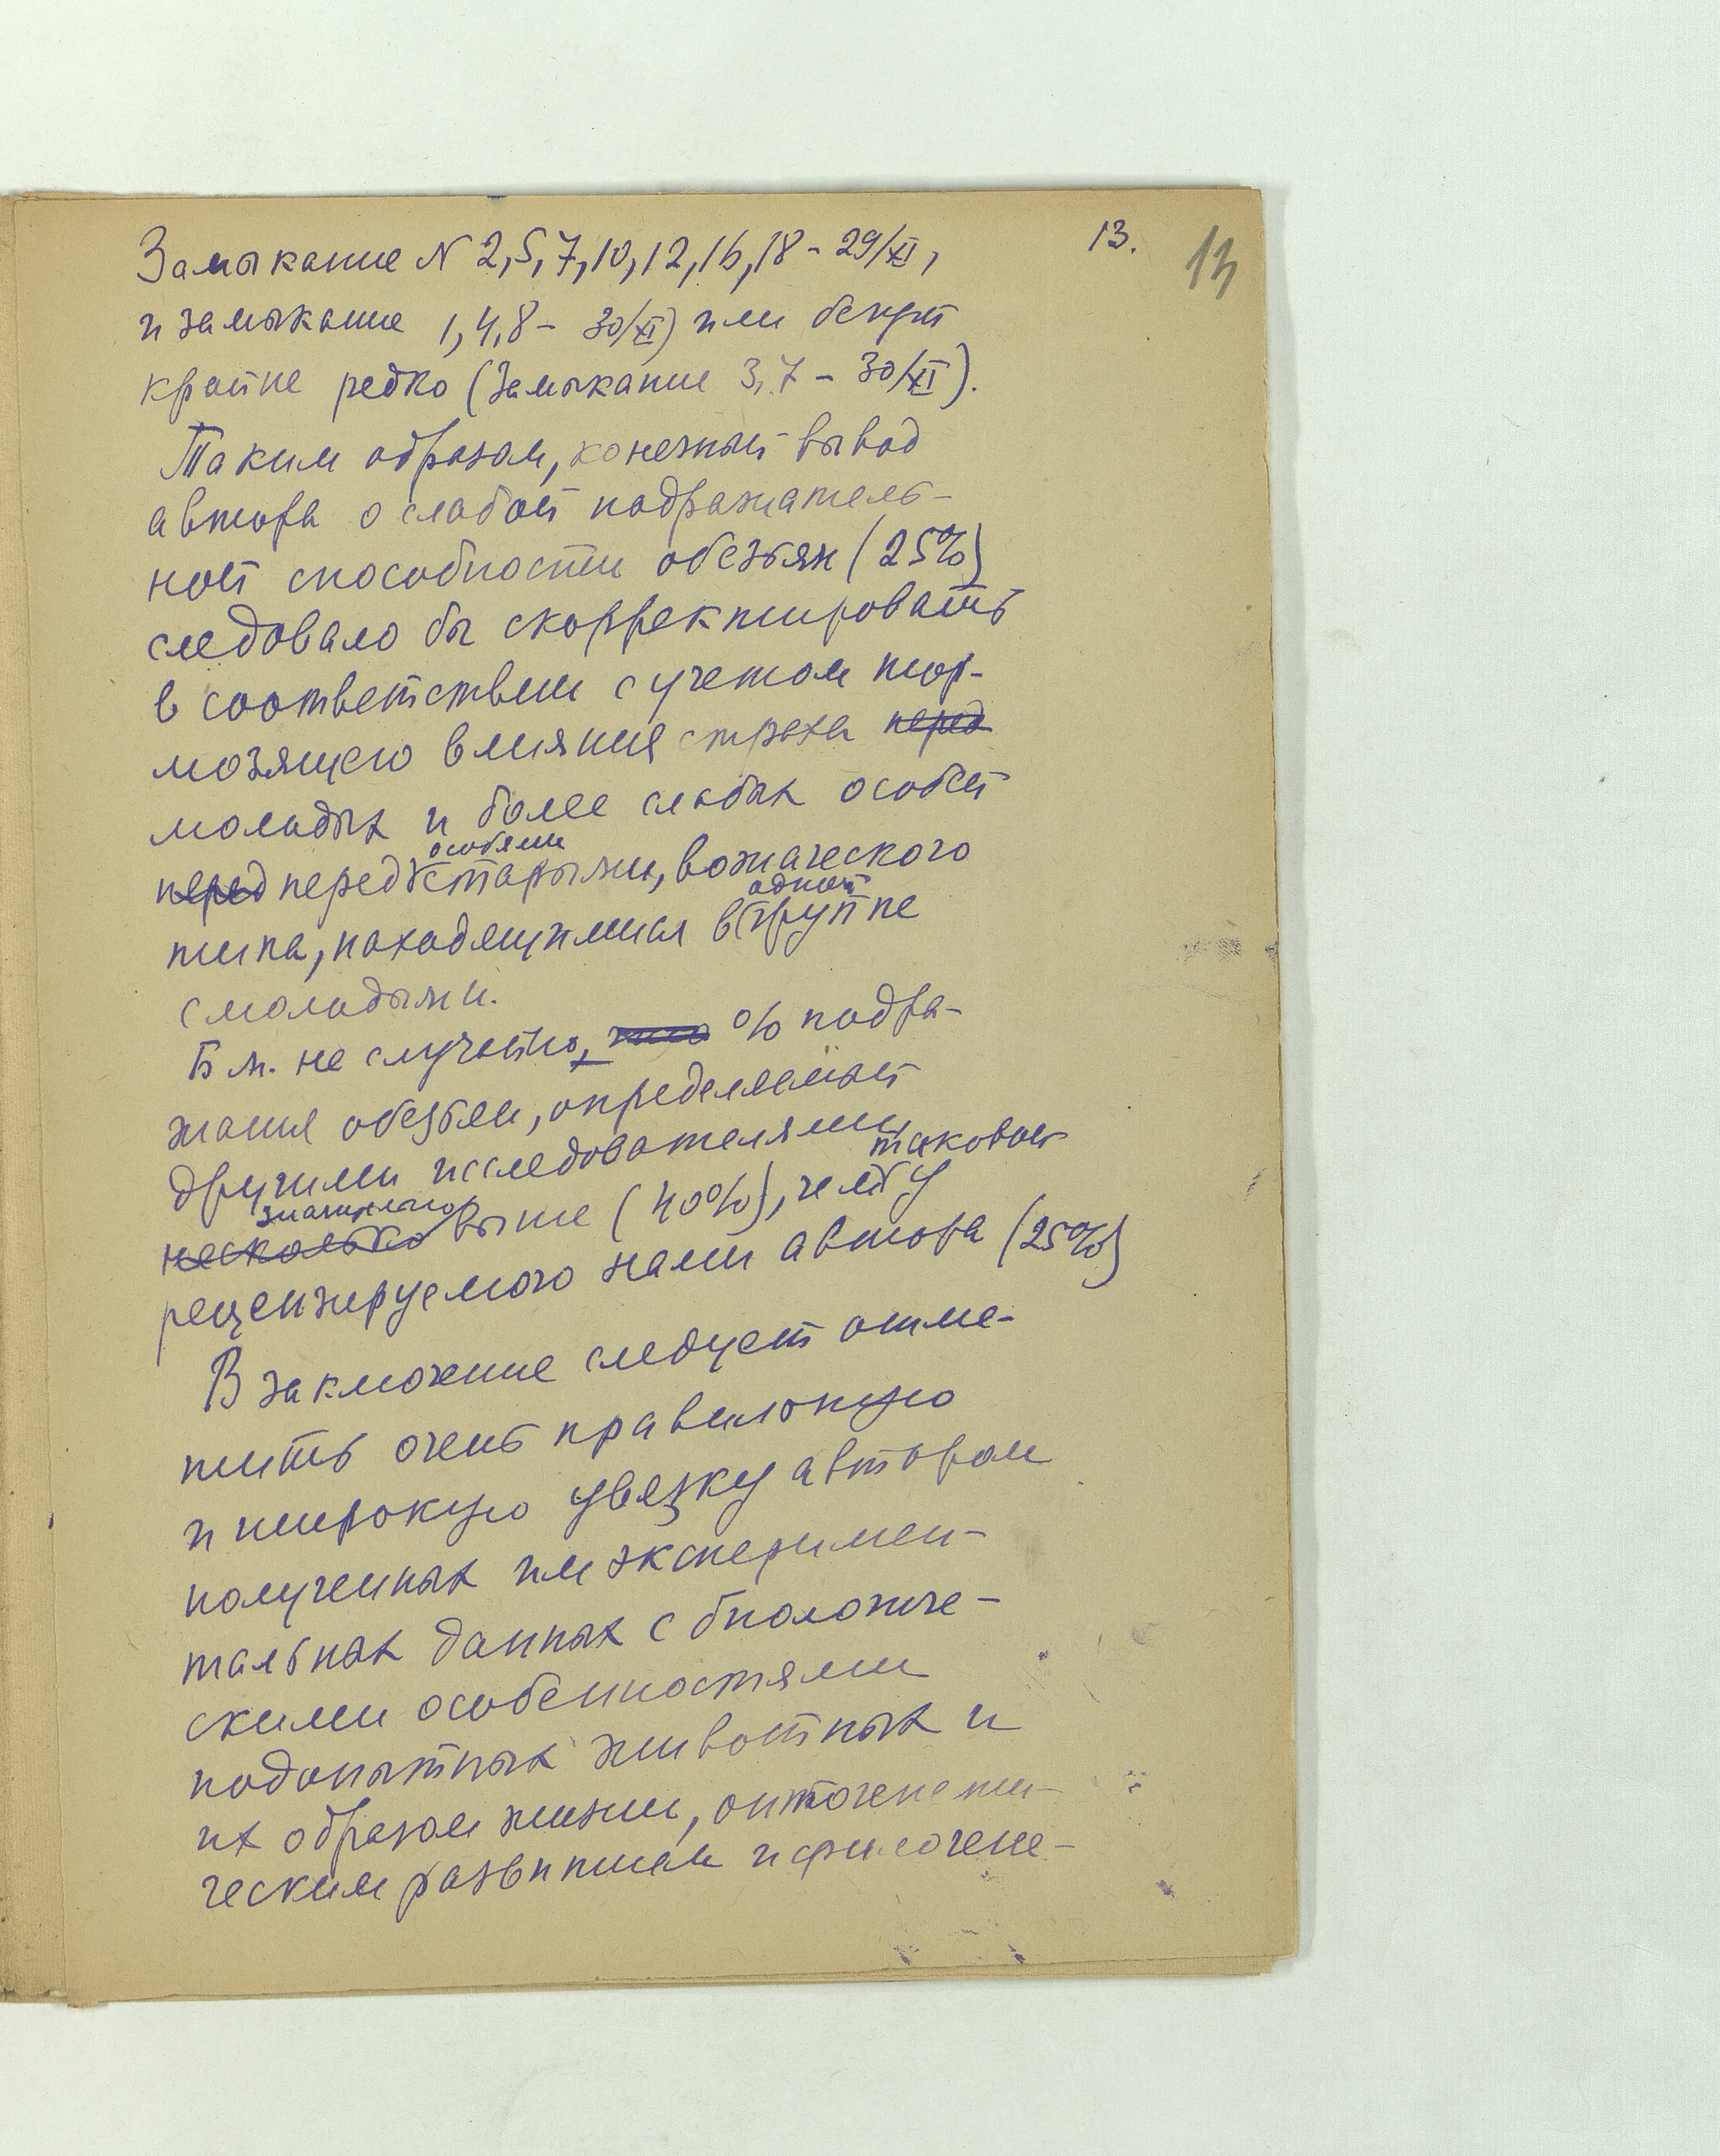 13.
13
Замыкание N 2,5,7,10,12,16,18 - 29/XI,
и замыкание 1,4,8 - 30/XI) или берут
крайне редко (Замыкание 3,7 - 30/XI).
Таким образом, конечный вывод
автора о слабой подражатель-
ной способности обезьян (25%)
следовало бы скорректировать
в соответствии с учетом тор-
мозящего влияния страха перед
молодых и более слабых особей
особями
перед перед старыми, вожаческого
одной
типа, находящимися в группе
с молодыми.
Б м. не случайно, что % подра-
жания обезьян, определяемый
другими исследователями,
таковой
значительно
несколько выше (40%), чем у
рецензируемого нами автора (25%)
В заключение следует отме-
тить очень правильную
и широкую увязку автором
полученных им эксперимен-
тальных данных с биологиче-
скими особенностями
подопытных животных и
их образом жизни, онтогенети-
ческим развитием и филогене-